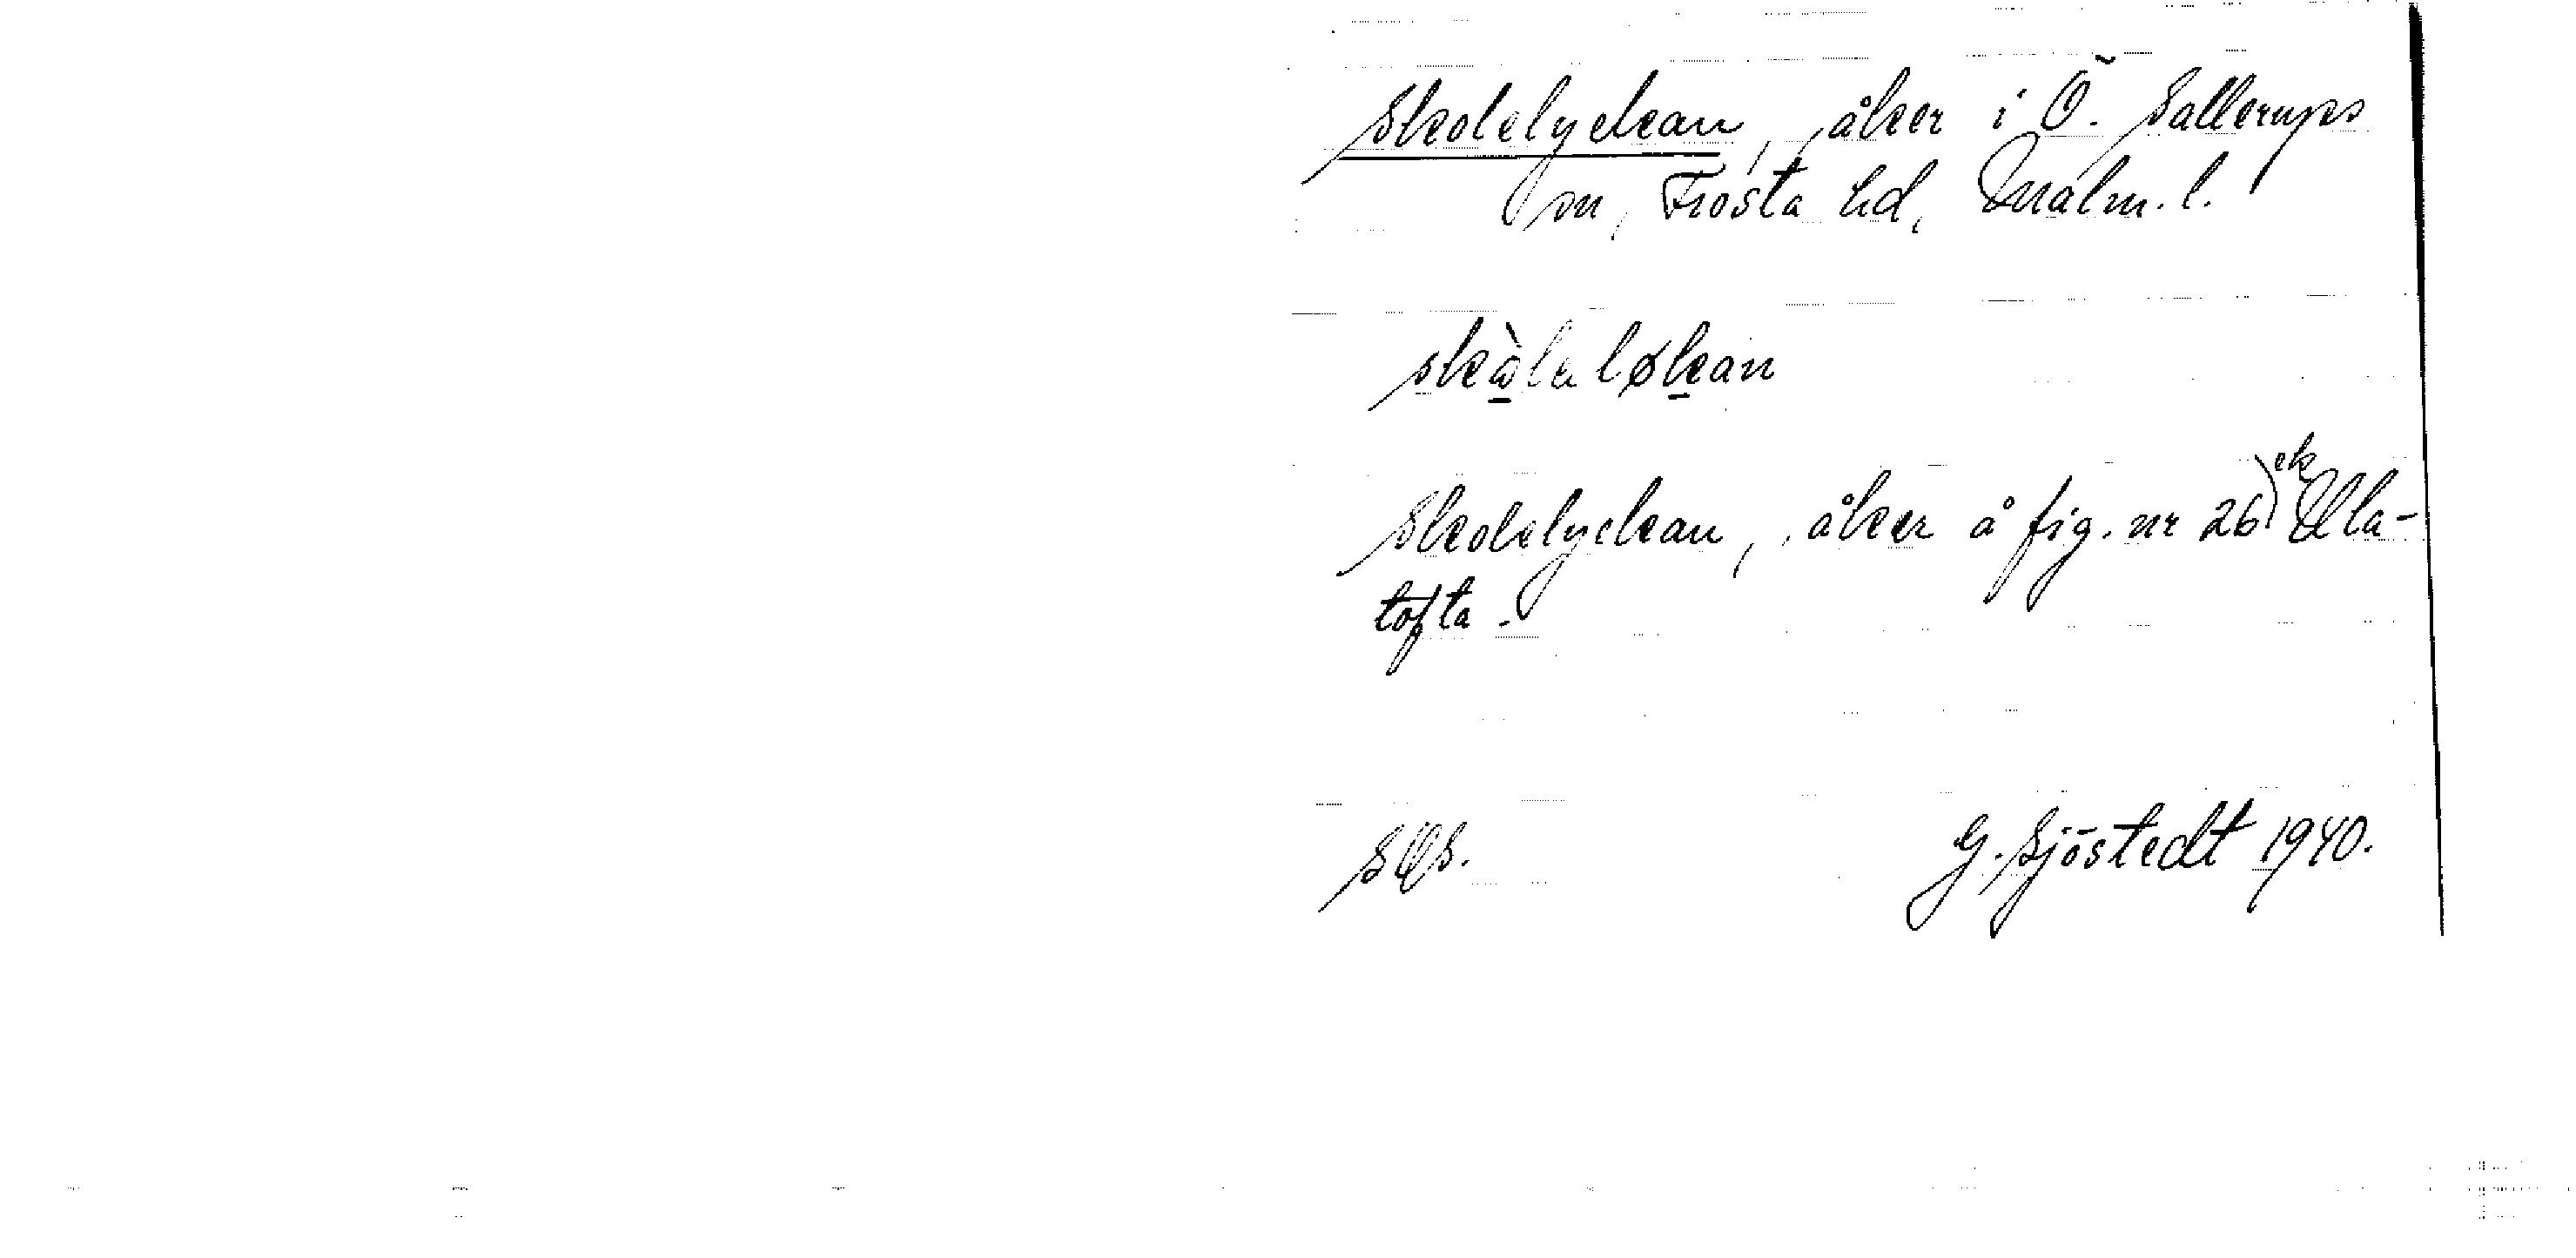 Skolelyckan, åker i Ö. Sallerups
sn, Frosta hd, Malm. l.
skòlaløkan
Skolelyckan, åker å fig. nr 26) ek Ulla-
tofta.
SOS.
G. Sjöstedt 1940.